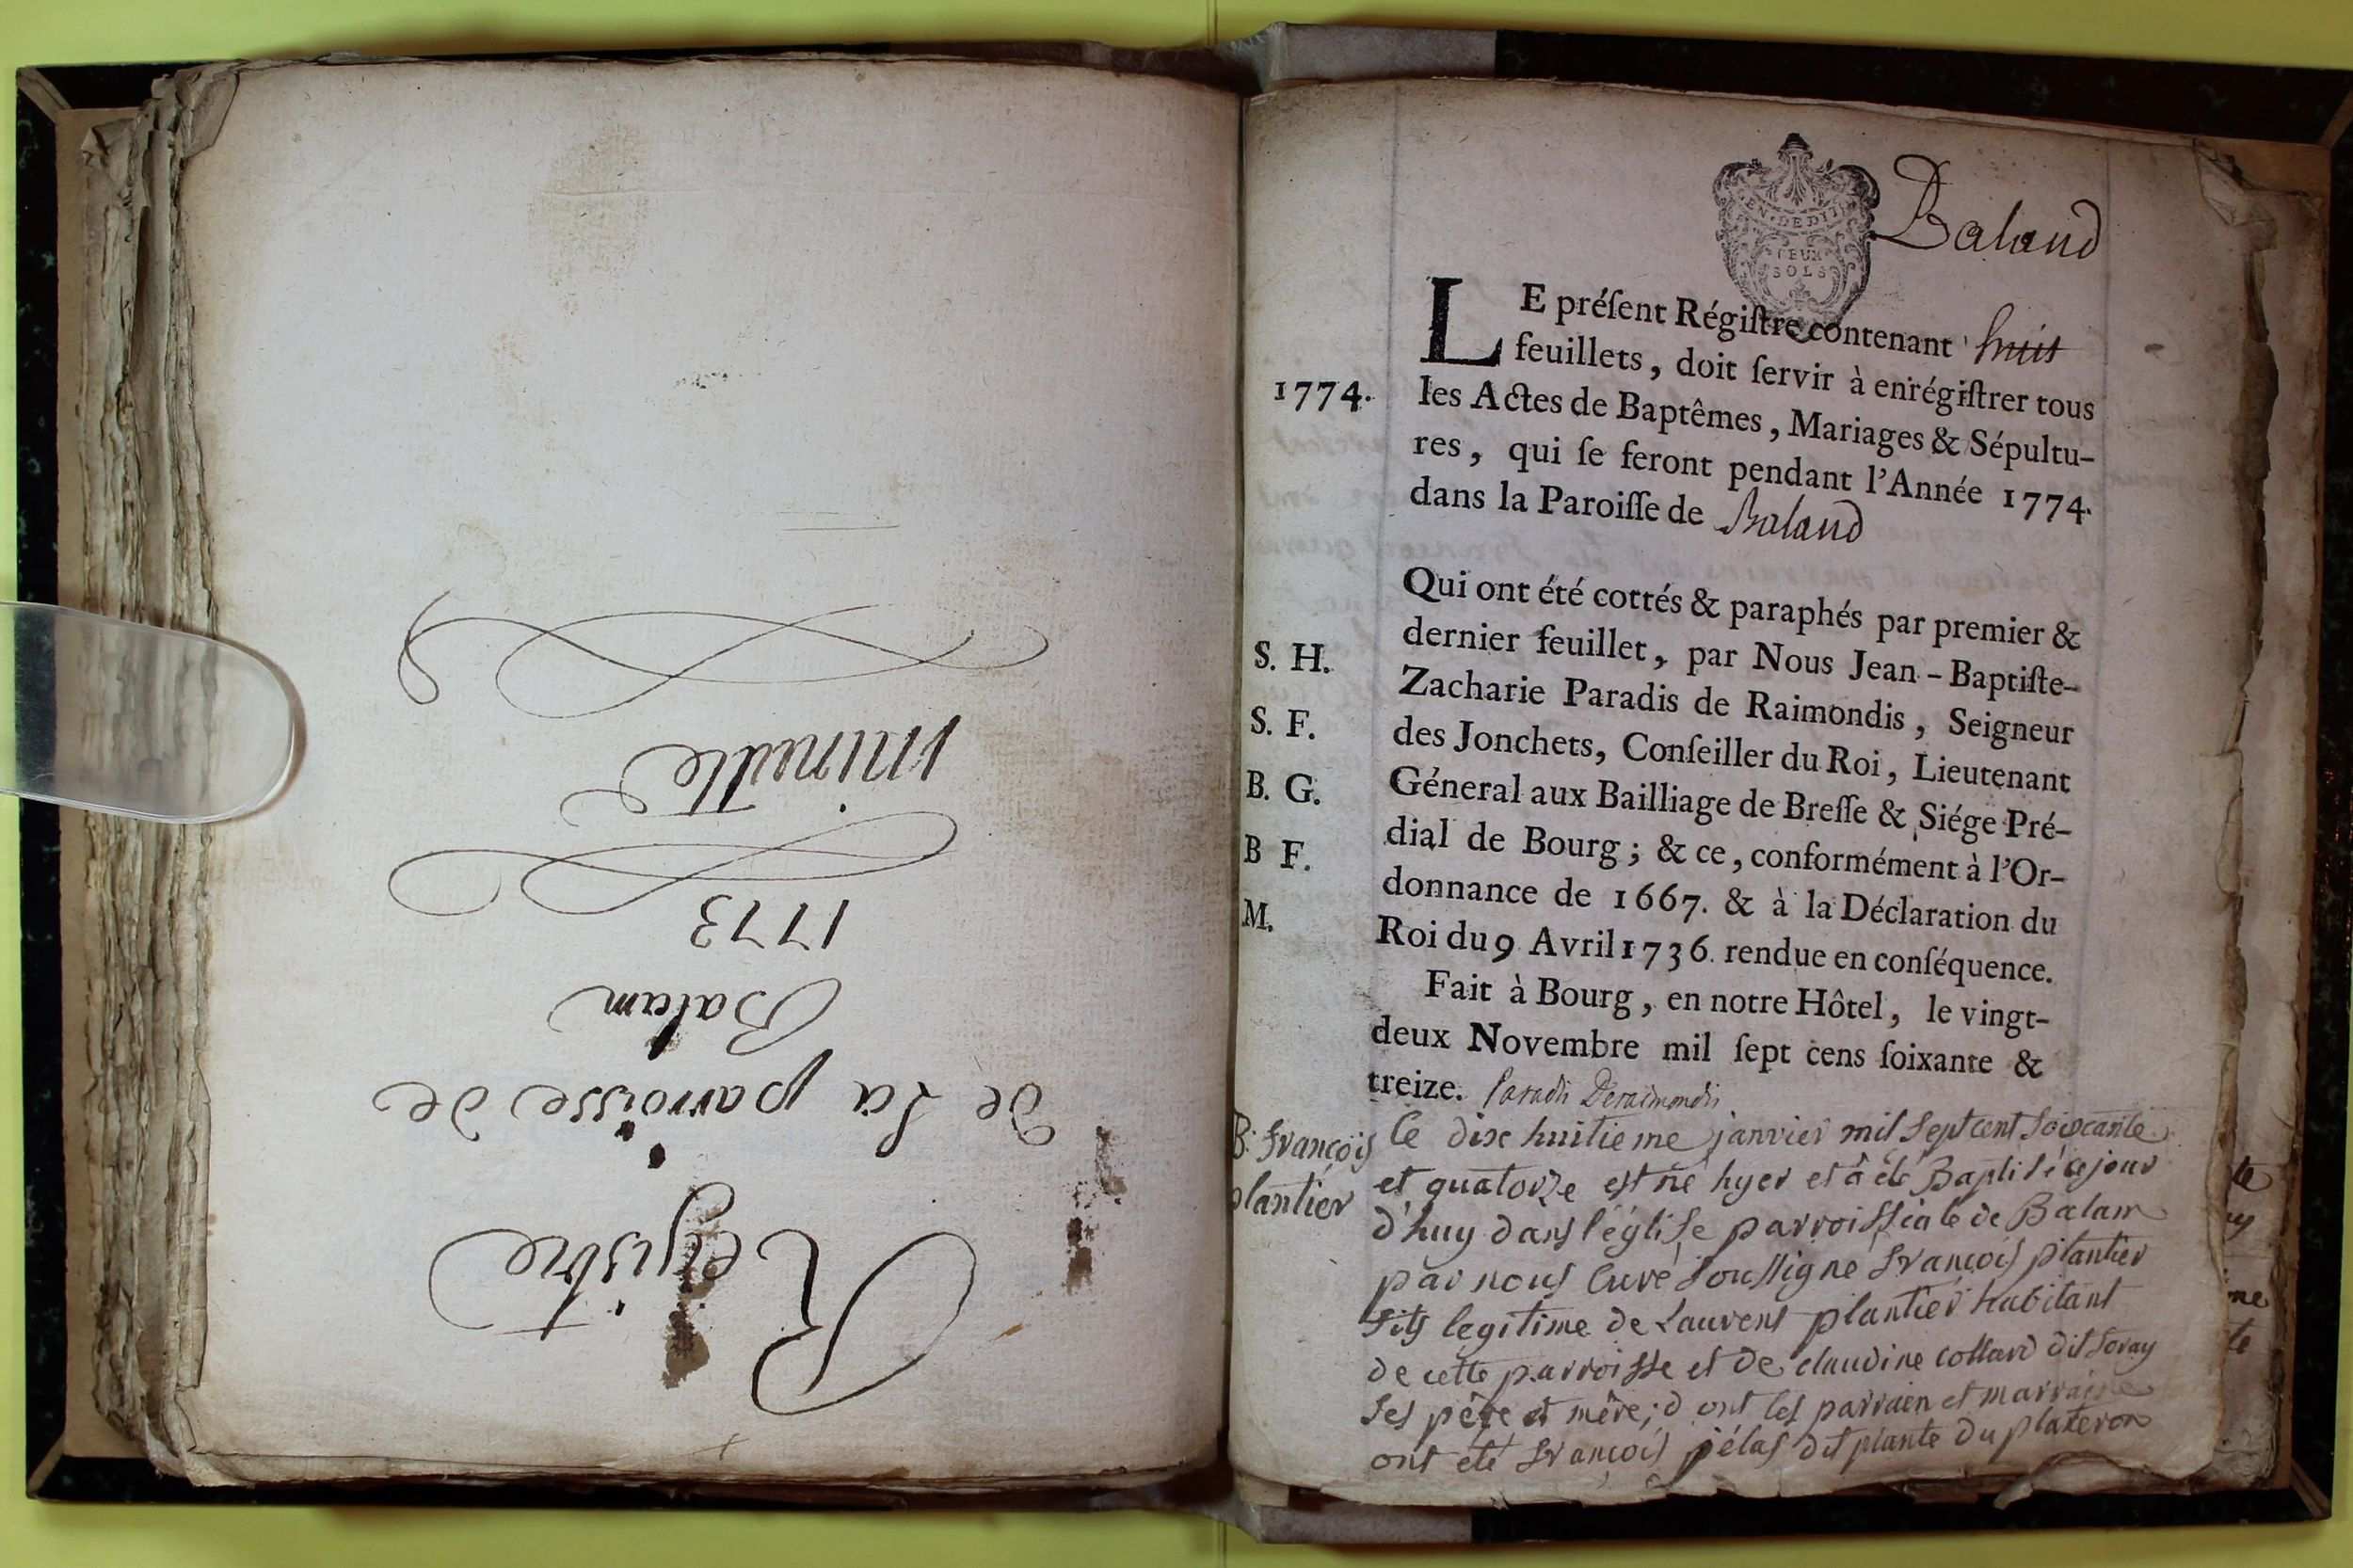 Registre
de la parroisse de
Balam
1773
minutte
GEN. DE DIJ
DEUX
SOLS
Baland
LE préſent Régiſtre contenant huit
feuillets, doit ſervir à enrégiſtrer tous
1774. les Actes de Baptêmes, Mariages & Sépultu-
res, qui ſe feront pendant l'Année 1774.
dans la Paroiſſe de Baland
Qui ont été cottés & paraphés par premier &
dernier feuillet, par Nous Jean-Baptiſte-
S. H. Zacharie Paradis de Raimondis, Seigneur
S. F. des Jonchets, Conſeiller du Roi, Lieutenant
B. G. Géneral aux Bailliage de Breſſe & Siége Pré-
B F. dial de Bourg; & ce, conformément à l'Or-
donnance de 1667. & à la Déclaration du
M. Roi du 9 Avril 1736. rendue en conſéquence.
Fait à Bourg, en notre Hôtel, le vingt-
deux Novembre mil ſept cens ſoixante &
treize. Paradis Deraimondis
B. françois Ce dix huitieme janvier mil sept cent soixante
plantier et quatorze est né hyer et à été Baptisé cejour
d'huy dans l'église parroissiale de Balam
par nous Curé soussigné françois plantier
fils legitime de Laurent plantier habitant
de cette parroisse et de claudine collard dit foray
ses père et mère; d ont les parrain et marraine
ont été françois jélas dit plante du plateron